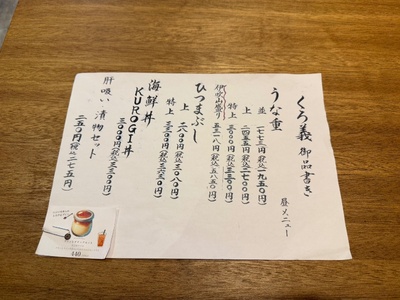 くろ義 御品書き
昼メニュー
うな重
並 一七七三円(税込一九五〇円)
上 二四五五円(税込二七〇〇円)
特上 三〇〇〇円(税込三三〇〇円)
伊吹山盛り 五三一八円(税込五八五〇円)
ひつまぶし
上 二八〇〇円(税込三〇八〇円)
特上 三三〇〇円(税込三六三〇円)
海鮮丼
KUROGI丼
三〇〇〇円(税込三三〇〇円)
肝吸い 漬物セット
二五〇円(税込二七五円)
440